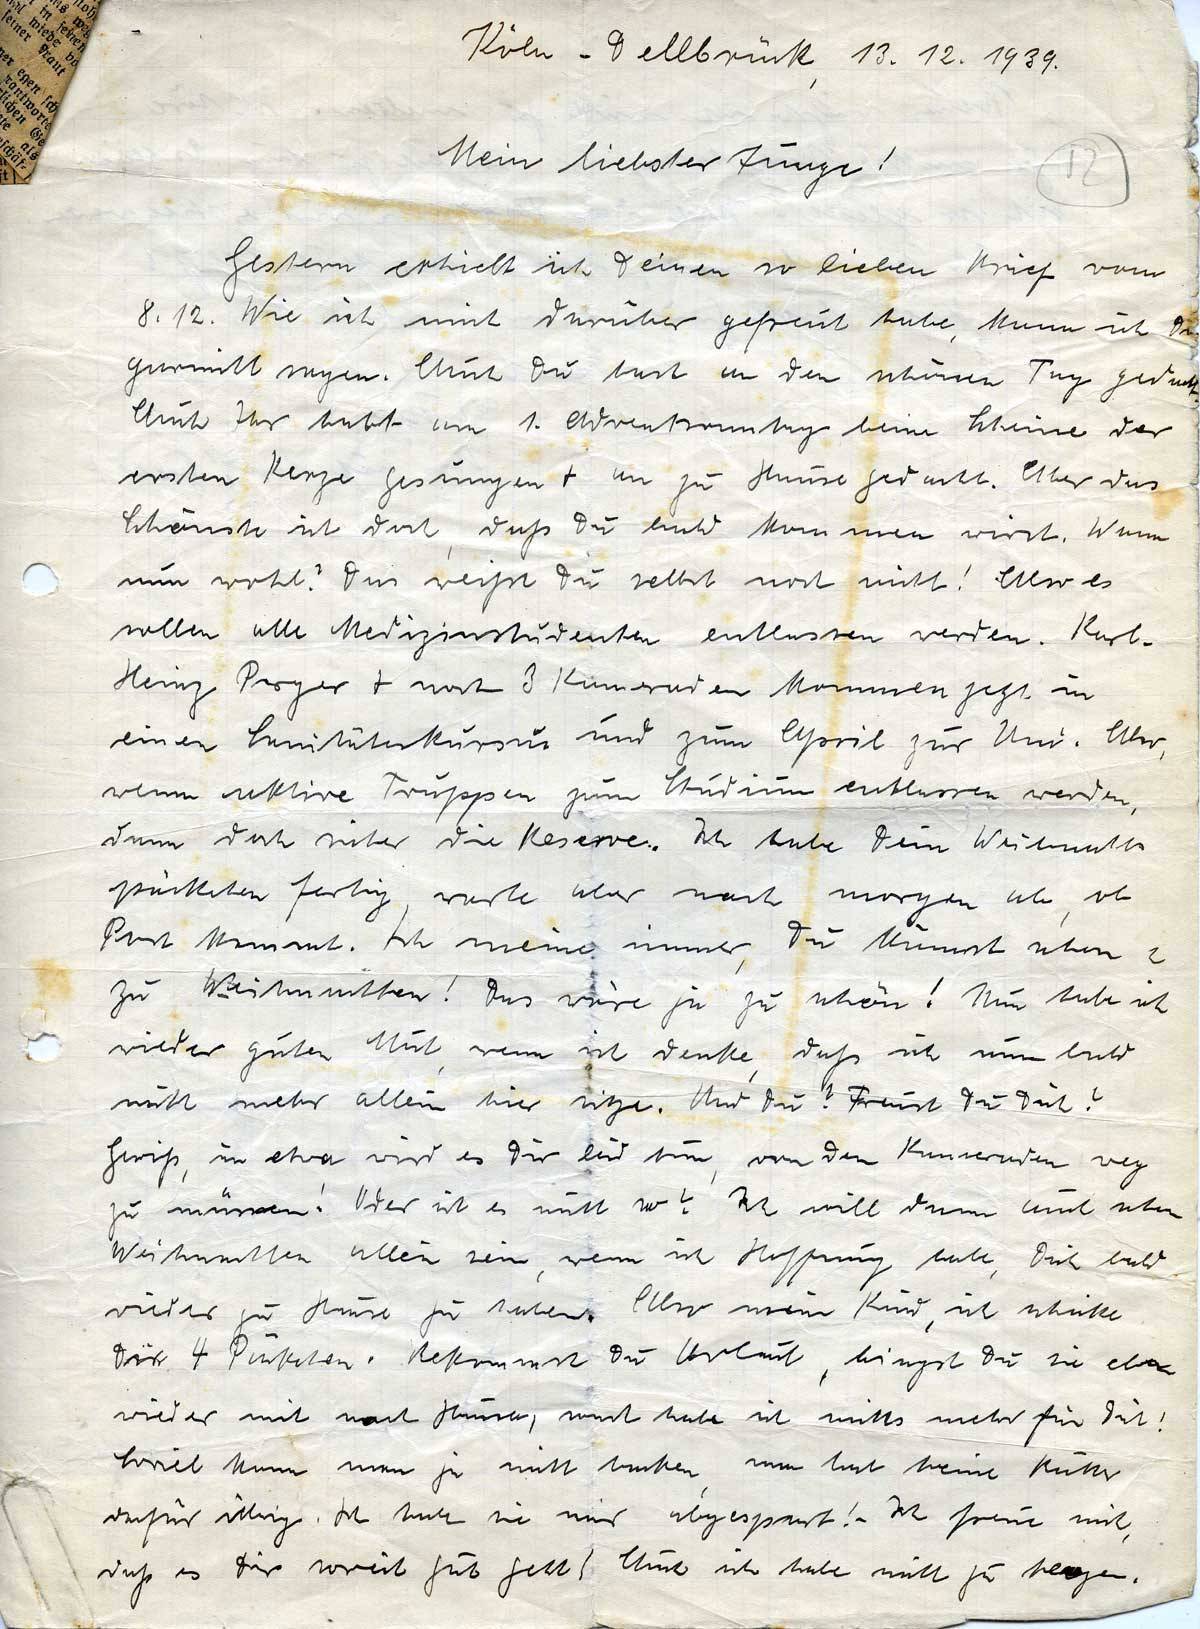 Köln - Dellbrück, 13. 12. 1939.
12
Mein liebster Junge!
Gestern erhielt ich Deinen so lieben Brief vom
8. 12. Wie ich mich darüber gefreut habe, kann ich Dir
garnicht sagen. Auch Du hast an den schönen Tag gedacht.
Auch Ihr habt am 1. Adventsonntag beim Scheine der
ersten Kerze gesungen + an zu Hause gedacht. Aber das
Schönste ist doch, daß Du bald kommen wirst. Wann
nun wohl? Das weißt Du selbst noch nicht! Also es
sollen alle Medizinstudenten entlassen werden. Karl-
Heinz + noch 3 Kameraden kommen jetzt in
einen Sanitäterkursus und zum April zur Uni. Also,
wenn aktive Truppen zum Studium entlassen werden,
dann doch sicher die Reserve. Ich habe Dein Weihnachts
päckchen fertig, warte aber noch morgen ab, ob
Post kommt. Ich meine immer, Du kämst schon
zu Weihnachten! Das wäre ja zu schön! Nun habe ich
wieder guten Mut, wenn ich denke, daß ich nun bald
nicht mehr allein hier sitze. Und Du? Freust Du Dich?
Gewiß, in etwa wird es Dir leid tun, von den Kameraden weg
zu müssen! Oder ist es nicht so? Ich will dann auch schon
Weihnachten allein sein, wenn ich Hoffnung habe, Dich bald
wieder zu Hause zu haben. Also mein Kind, ich schicke
Dir 4 Päckchen. Bekommst Du Urlaub, bringst Du sie eben
wieder mit nach Hause, sonst habe ich nichts mehr für Dich!
Soviel kann man ja nicht backen, man hat keine
dafür übrig. Ich habe sie mir abgespart! - Ich freue mich,
daß es Dir soweit gut geht! Auch ich habe nicht zu klagen.